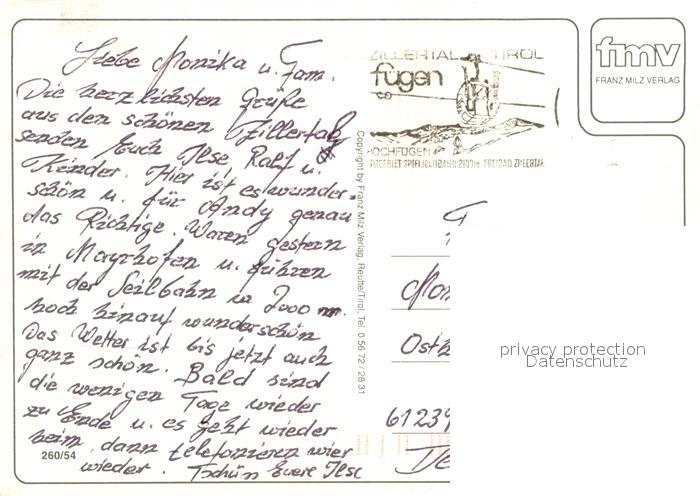 Liebe Monika u. Fam.
Die herzlichsten Grüße
aus dem schönen Zillertal
senden Euch Ilse Ralf u.
Kinder. Hier ist es wunder-
schön u. für Andy genau
das Richtige. Waren gestern
in Mayrhofen u. führen
mit der Seilbahn 2000 m
hoch hinauf wunderschön
Das Wetter ist bis jetzt auch
ganz schön. Bald sind
die wenigen Tage wieder
zu Ende u. es geht wieder
heim dann telefonieren wier
wieder. Tschüs Euere Ilse
260/54
Copyright by Franz Milz Verlag, Reutte/Tirol, Tel. 0 56 72 / 28 31
ZILLERTAL TIROL
fügen
HOCHFÜGEN
fmv
FRANZ MILZ VERLAG
F
Mon
Osth
61239
De
privacy protection
Datenschutz